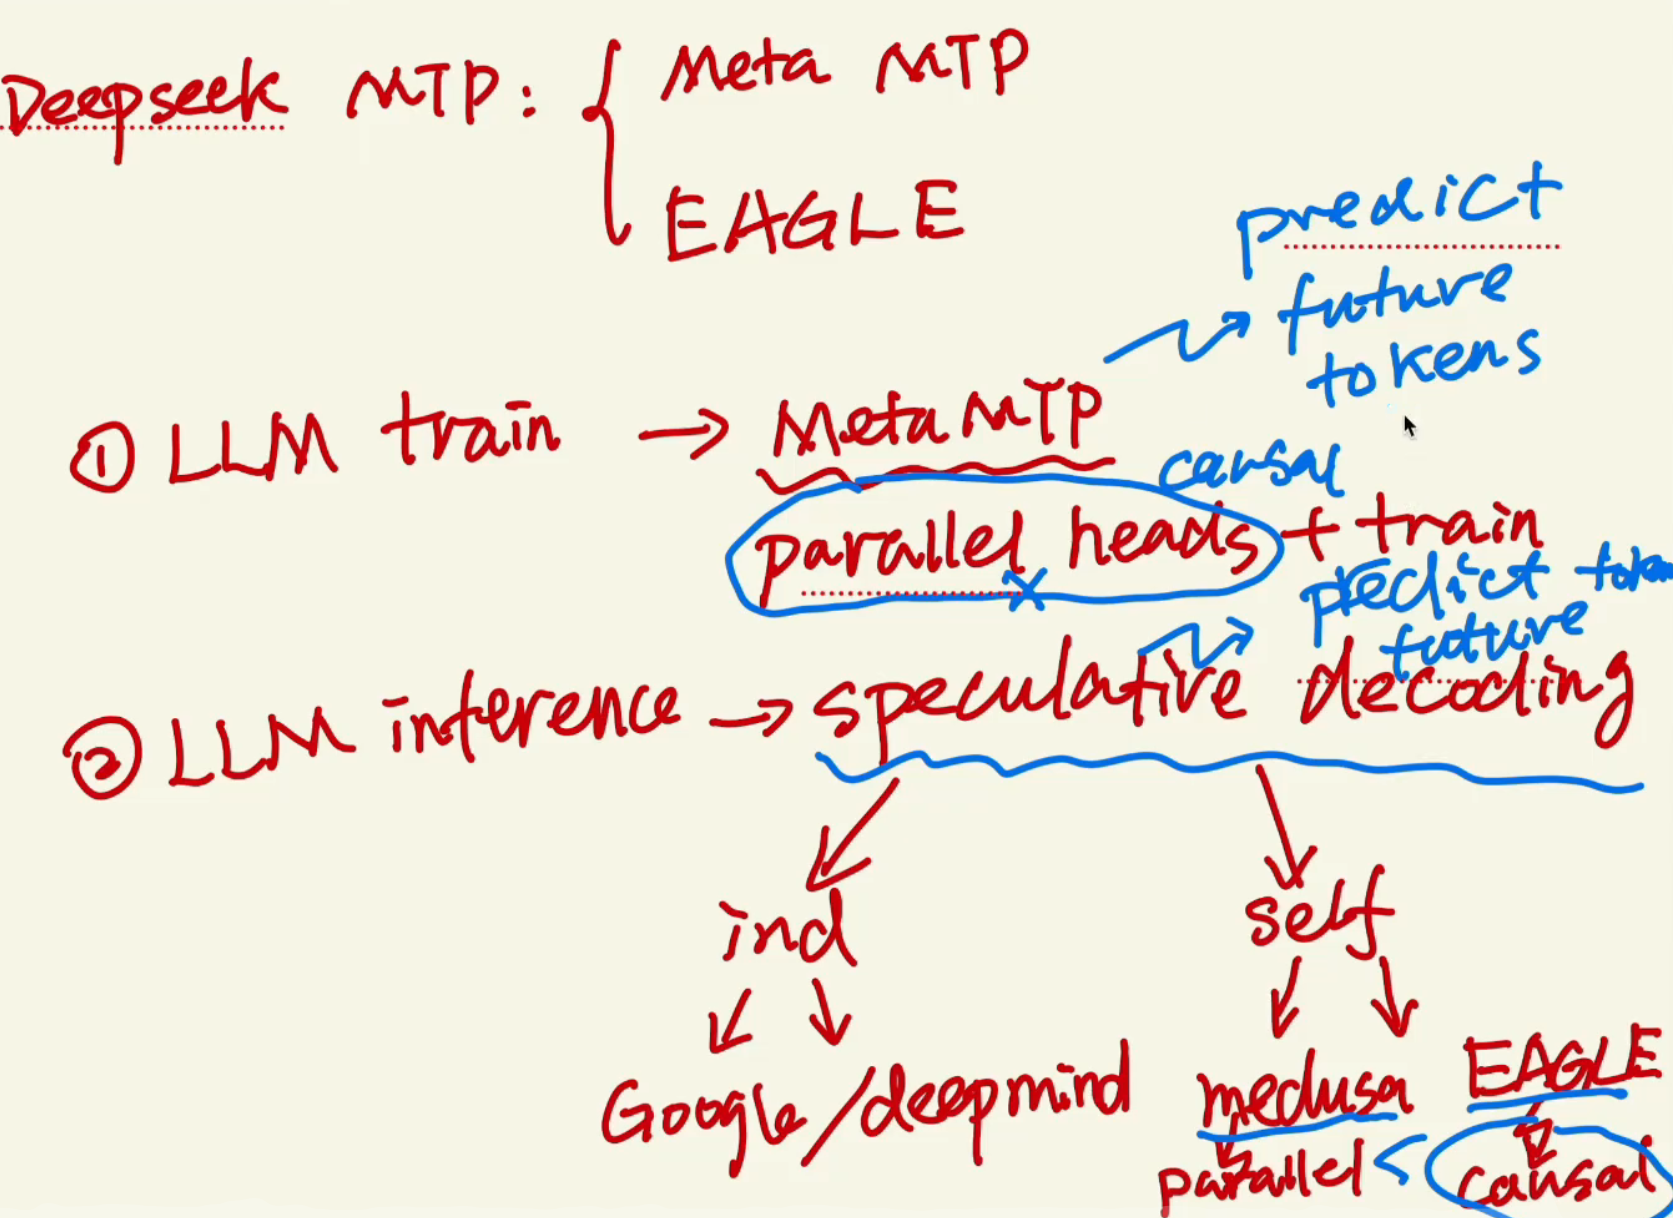 Deepseek MTP:
Meta MTP
EAGLE
predict
future
tokens
① LLM train → Meta MTP
causal
parallel heads + train
predict token
future
② LLM inference → speculative decoding
ind
self
Google/deepmind
medusa
EAGLE
parallel < causal